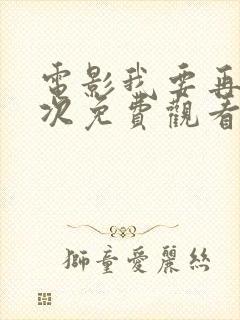 電影我要再
次免費觀看
獅童愛麗絲